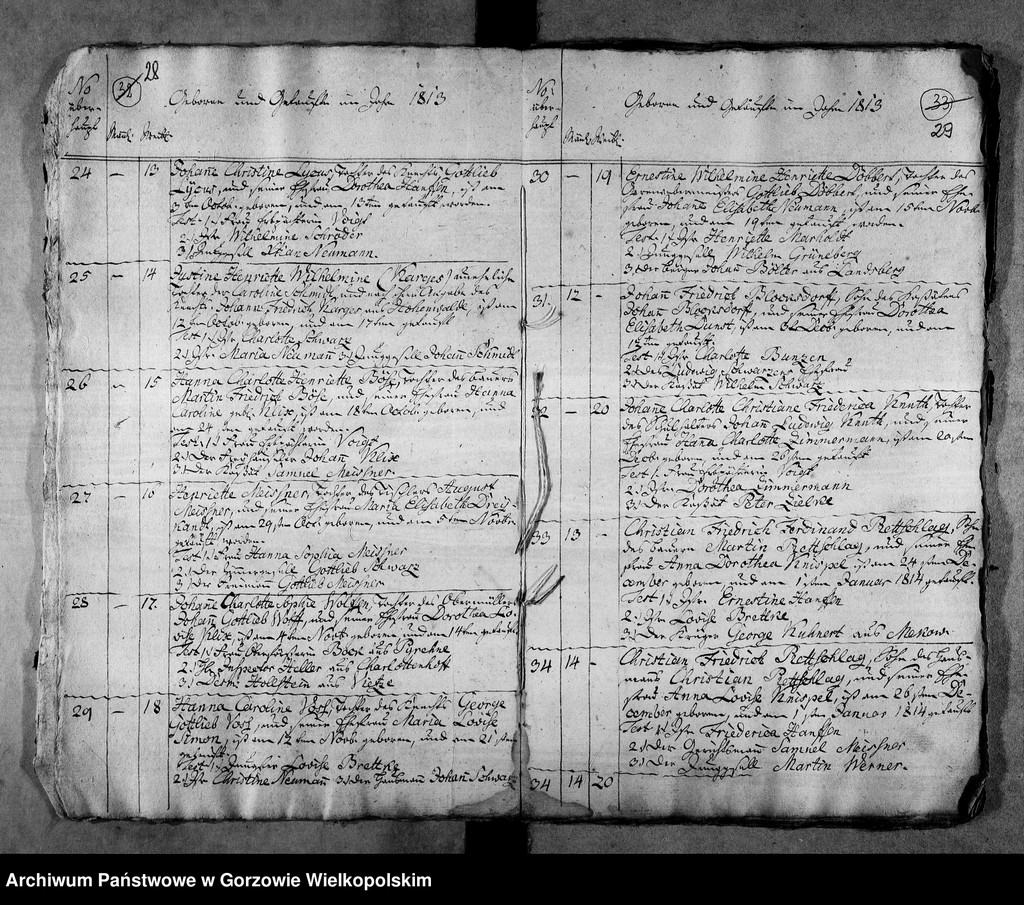 28
No überhaupt
Männl. Weibl.
Geboren und Getaufte im Jahr 1813
24 — 13 Johane Christine Lycus, Tochter des Knechts Gottlieb
Lycus, und seiner Ehefrau Dorothea Hanffen, ist am
3ten Octob. geboren, und am 13ten getauft worden.
Test. 1) Frau Voigt
2) Jfr Wilhelmine Schröder
3) Junggesell Neumann.
25 — 14 Justine Henriette Wilhelmine (Karges) uneheliche
Tochter der Caroline Schmidt, und nach ihrer Angabe des
Knechts Johann Friedrich Karges, aus Hohenwalde, ist am
12ten Octob. geboren, und am 17ten getauft
Test. 1) Jfr Charlotte Schwarz
2) Jfr Maria Neumann 3) Junggesell Johann Schmidt
26 — 15 Hanna Charlotte Henriette Böse, Tochter des Bauers
Martin Friedrich Böse, und seiner Ehefrau Hanna
Caroline geb. Klix, ist am 18ten Octob. geboren, und
am 24 ten getauft worden.
Test. 1) Frau Voigt
2) Der Johann Klix
3) Der Kossät Samuel Meissner.
27 — 16 Henriette Meissner, Tochter des Tischlers August
Meissner, und seiner Ehefrau Maria Elisabetha
ist am 29ten Oct. geboren, und am 5ten Novbr.
getauft worden.
Test. 1) Frau Hanna Sophia Meissner
2) Der Gottlieb Schwarz
3) Der Gottlieb Meissner
28 — 17. Johane Charlotte Sophie Wolffen, Tochter des Obermüllers
Johann Gottlieb Wolff, und seiner Ehefrau Dorothea Louise
Klix, ist am 4ten Novbr. geboren und am 14ten getauft
Test. 1) Frau Beese aus Pyrehne
2) Hr. Inspector Heller aus Charlottenhoff
3) Hollstein aus Vietze
29 — 18 Hanna Caroline Vosz, Tochter des Knechts George
Gottlieb Vosz, und seiner Ehefrau Maria Louise
Simon, ist am 12ten Novbr. geboren, und am 21sten
getauft
Test. 1) Jungfer Louise Brettke
2) Jfr Christine Neumann 3) Der Hausmann Johann Schwarz
33
29
No überhaupt
Männl. Weibl.
Geboren und Getaufte im Jahre 1813
30 — 19 Ernestine Wilhelmine Henriette Döbbert, Tochter des
Gottlieb Döbbert, und seiner Ehefrau
Johane Elisabeth Neumann, ist am 15ten Novbr.
geboren, und am 19ten getauft worden.
Test. 1) Jfr Henriette Marholdt
2) Junggesell Wilhelm Grüneberg
3) Der Bürger Johann Bölter aus Landsberg
31. 12 — Johann Friedrich Bloensdorf, Sohn des Kossäten
Johann Bloensdorf, und seiner Ehefrau Dorothea
Elisabeth Dunst, ist am 8t Decb. geboren, und am
12ten getauft.
Test. 1) Jfr Charlotte Bunzen
2) des Ludwig Schwarzens Ehefrau
3) Der Kossät Wilhelm Schwarz
32 — 20 Johane Charlotte Christiane Friederica Knuth, Tochter
des Schulhalters Johann Ludwig Knuth, und seiner
Ehefrau Hana Charlotte Zimmermann, ist am 20sten
Decbr. geboren, und am 26sten getauft
Test. 1) Frau Voigt
2) Jfr Dorothea Zimmermann
3) Der Kossät Peter Zielke
33 13 — Christian Friedrich Ferdinand Rettschlag, Sohn
des Bauern Martin Rettschlag, und seiner Ehefrau
Anna Dorothea Knispel, ist am 24sten December
geboren, und am 1sten Januar 1814 getauft.
Test. 1) Jfr. Ernestine Hanffen
2) Jfr Louise Brettke
3) Der Krüger George Kuhnert aus Mekow.
34 14 — Christian Friedrich Rettschlag, Sohn des Hausmanns
Christian Rettschlag, und seiner Ehefrau
Anna Louise Knispel, ist am 26sten December
geboren, und am 1sten Januar 1814 getauft
Test. 1) Jfr Friederica Hanffen
2) Der Gerichtsmann Samuel Meissner
3) Der Junggesell Martin Werner.
34 14 20
Archiwum Państwowe w Gorzowie Wielkopolskim